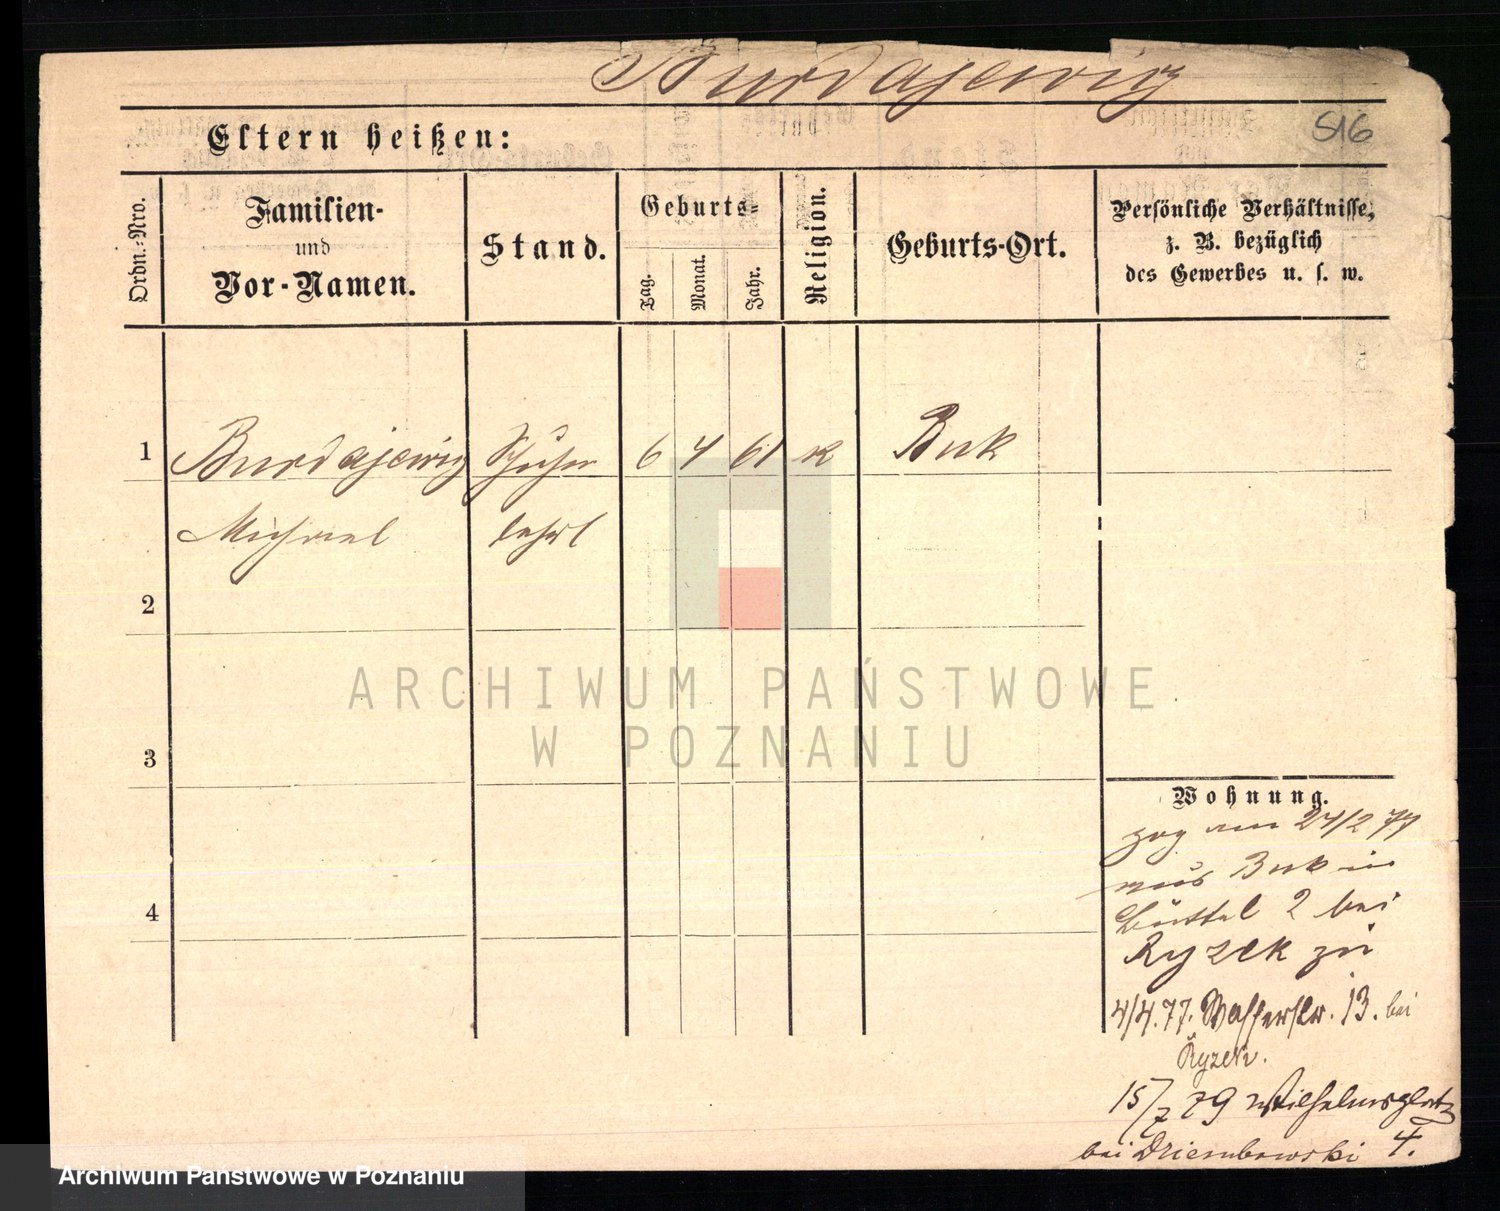 Burdajewicz
Eltern heißen:
516
Ordn.-Nro.
Familien-
und
Vor-Namen.
Stand.
Geburts-
Tag.
Monat.
Jahr.
Religion.
Geburts-Ort.
Persönliche Verhältnisse,
z. B. bezüglich
des Gewerbes u. s. w.
1
Burdajewicz
Schuhm
6
4
61
K
Buk
Michael
lehrl
2
3
4
Wohnung.
zog am 24/2 77
aus Buk in
Büttel 2 bei
Ryzek zu
4/4.77. Wasserstr. 13. bei
Ryzek.
15/7 79 Wilhelmsplatz
bei Dziembowski 4.
ARCHIWUM PAŃSTWOWE
W POZNANIU
Archiwum Państwowe w Poznaniu